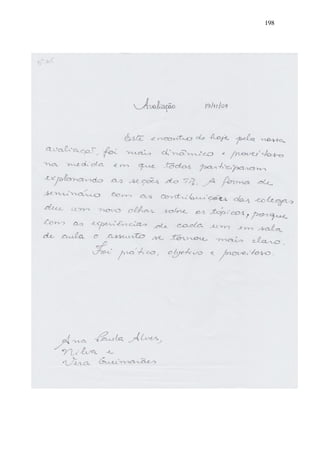 198
Avaliação 19/11/09
Este encontro de hoje pela nossa
avaliaçaõ, foi mais dinâmico e proveitoso
na medida em que todas participaram
explanando as seções do TP. A forma de
seminário com as contribuições das colegas
deu um novo olhar sobre os tópicos, porque
com as experiências de cada um em sala
de aula o assunto se tornou mais claro.
Foi prático, objetivo e proveitoso.
Ana Paula Alves,
Nilva e
Vera Guimarães